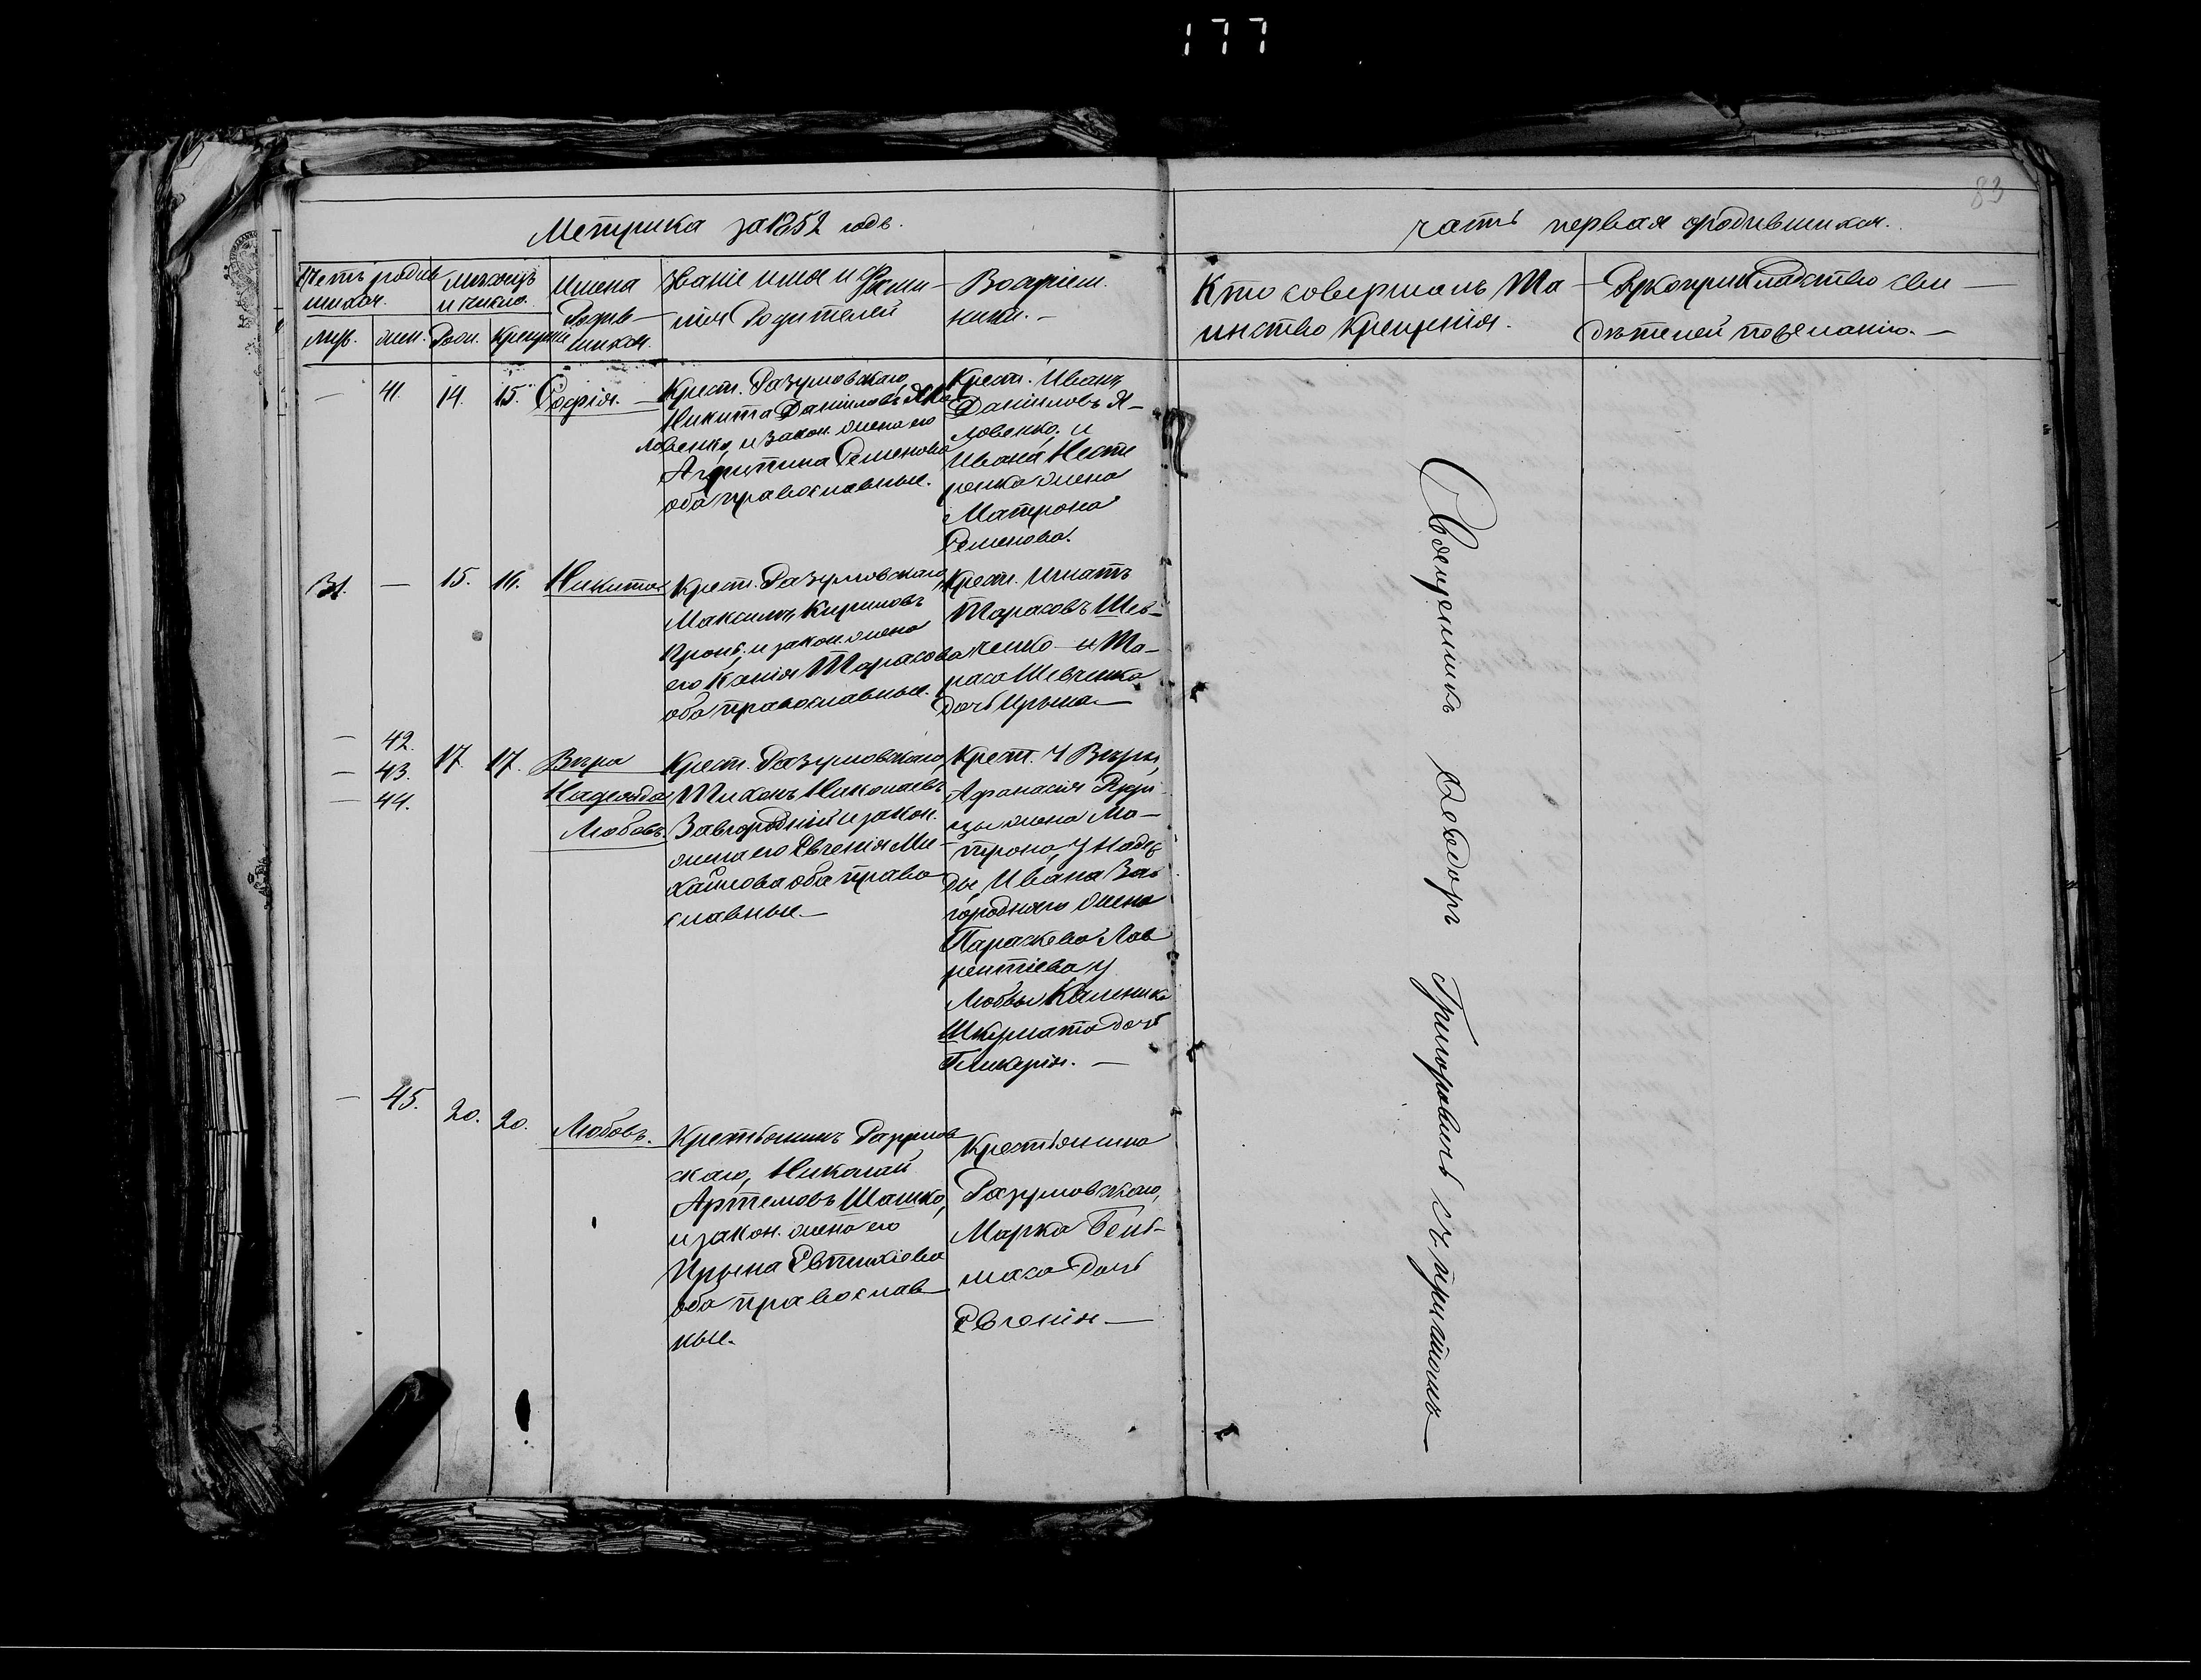 177
83
Метрика за 1852 годъ.
часть первая о родившихся.
Счетъ родив
шихся.
муж. жен.
мѣсяцъ
и число.
Рожд. Крещенія
Имена
Родив
шихся.
Званіе имя и Фами-
лія Родителей
Воспріем.
ники.-
Кто совершалъ Та-
инство Крещенія.
Рукоприкладство сви-
дѣтелей по желанію.-
- 41. 14. 15. Софія.
Крест. Разумовскаго,
Никита Даніиловъ
ловенко, и закон. жена его
Агрипина Семенова
оба православные.
Крест. Иванъ
Даніиловъ Я-
ловенко, и
Ивана Несте
ренка жена
Матрона
Семенова.
31. - 15. 16. Никита
Крест. Разумовскаго,
Максимъ Кириловъ
и закон. жена
его Ксенія Тарасова
оба православные.
Крест. Игнатъ
Тарасовъ Шев-
ченко и Та-
раса Шевченка
дочь Ирина.-
- 42.
- 43.
- 44.
17. 17. Вѣра
Надежда
Любовь.
Крест. Разумовскаго,
Тихонъ Николаевъ
Завгородній и закон.
жена его Евгенія Ми-
хайлова оба право-
славные.-
Крест. у Вѣры,
Афанасія
цы жена Ма-
трона, у Надеж
ды, Ивана Зав
городнаго жена
Параскева Лав
рентіева у
Любвы Каленика
Шкурмата дочь
Гликерія.-
- 45. 20. 20. Любовь.
Крестьянинъ Разумов
скаго, Николай
Артемовъ Шашко,
и закон. жена его
Ирына Евтихіева
оба православ-
ные.
Крестьянина
Разумовскаго,
Марка Бень-
маса дочь
Евгенія-
Священникъ Ѳеодоръ Григоровичъ съ причтомъ